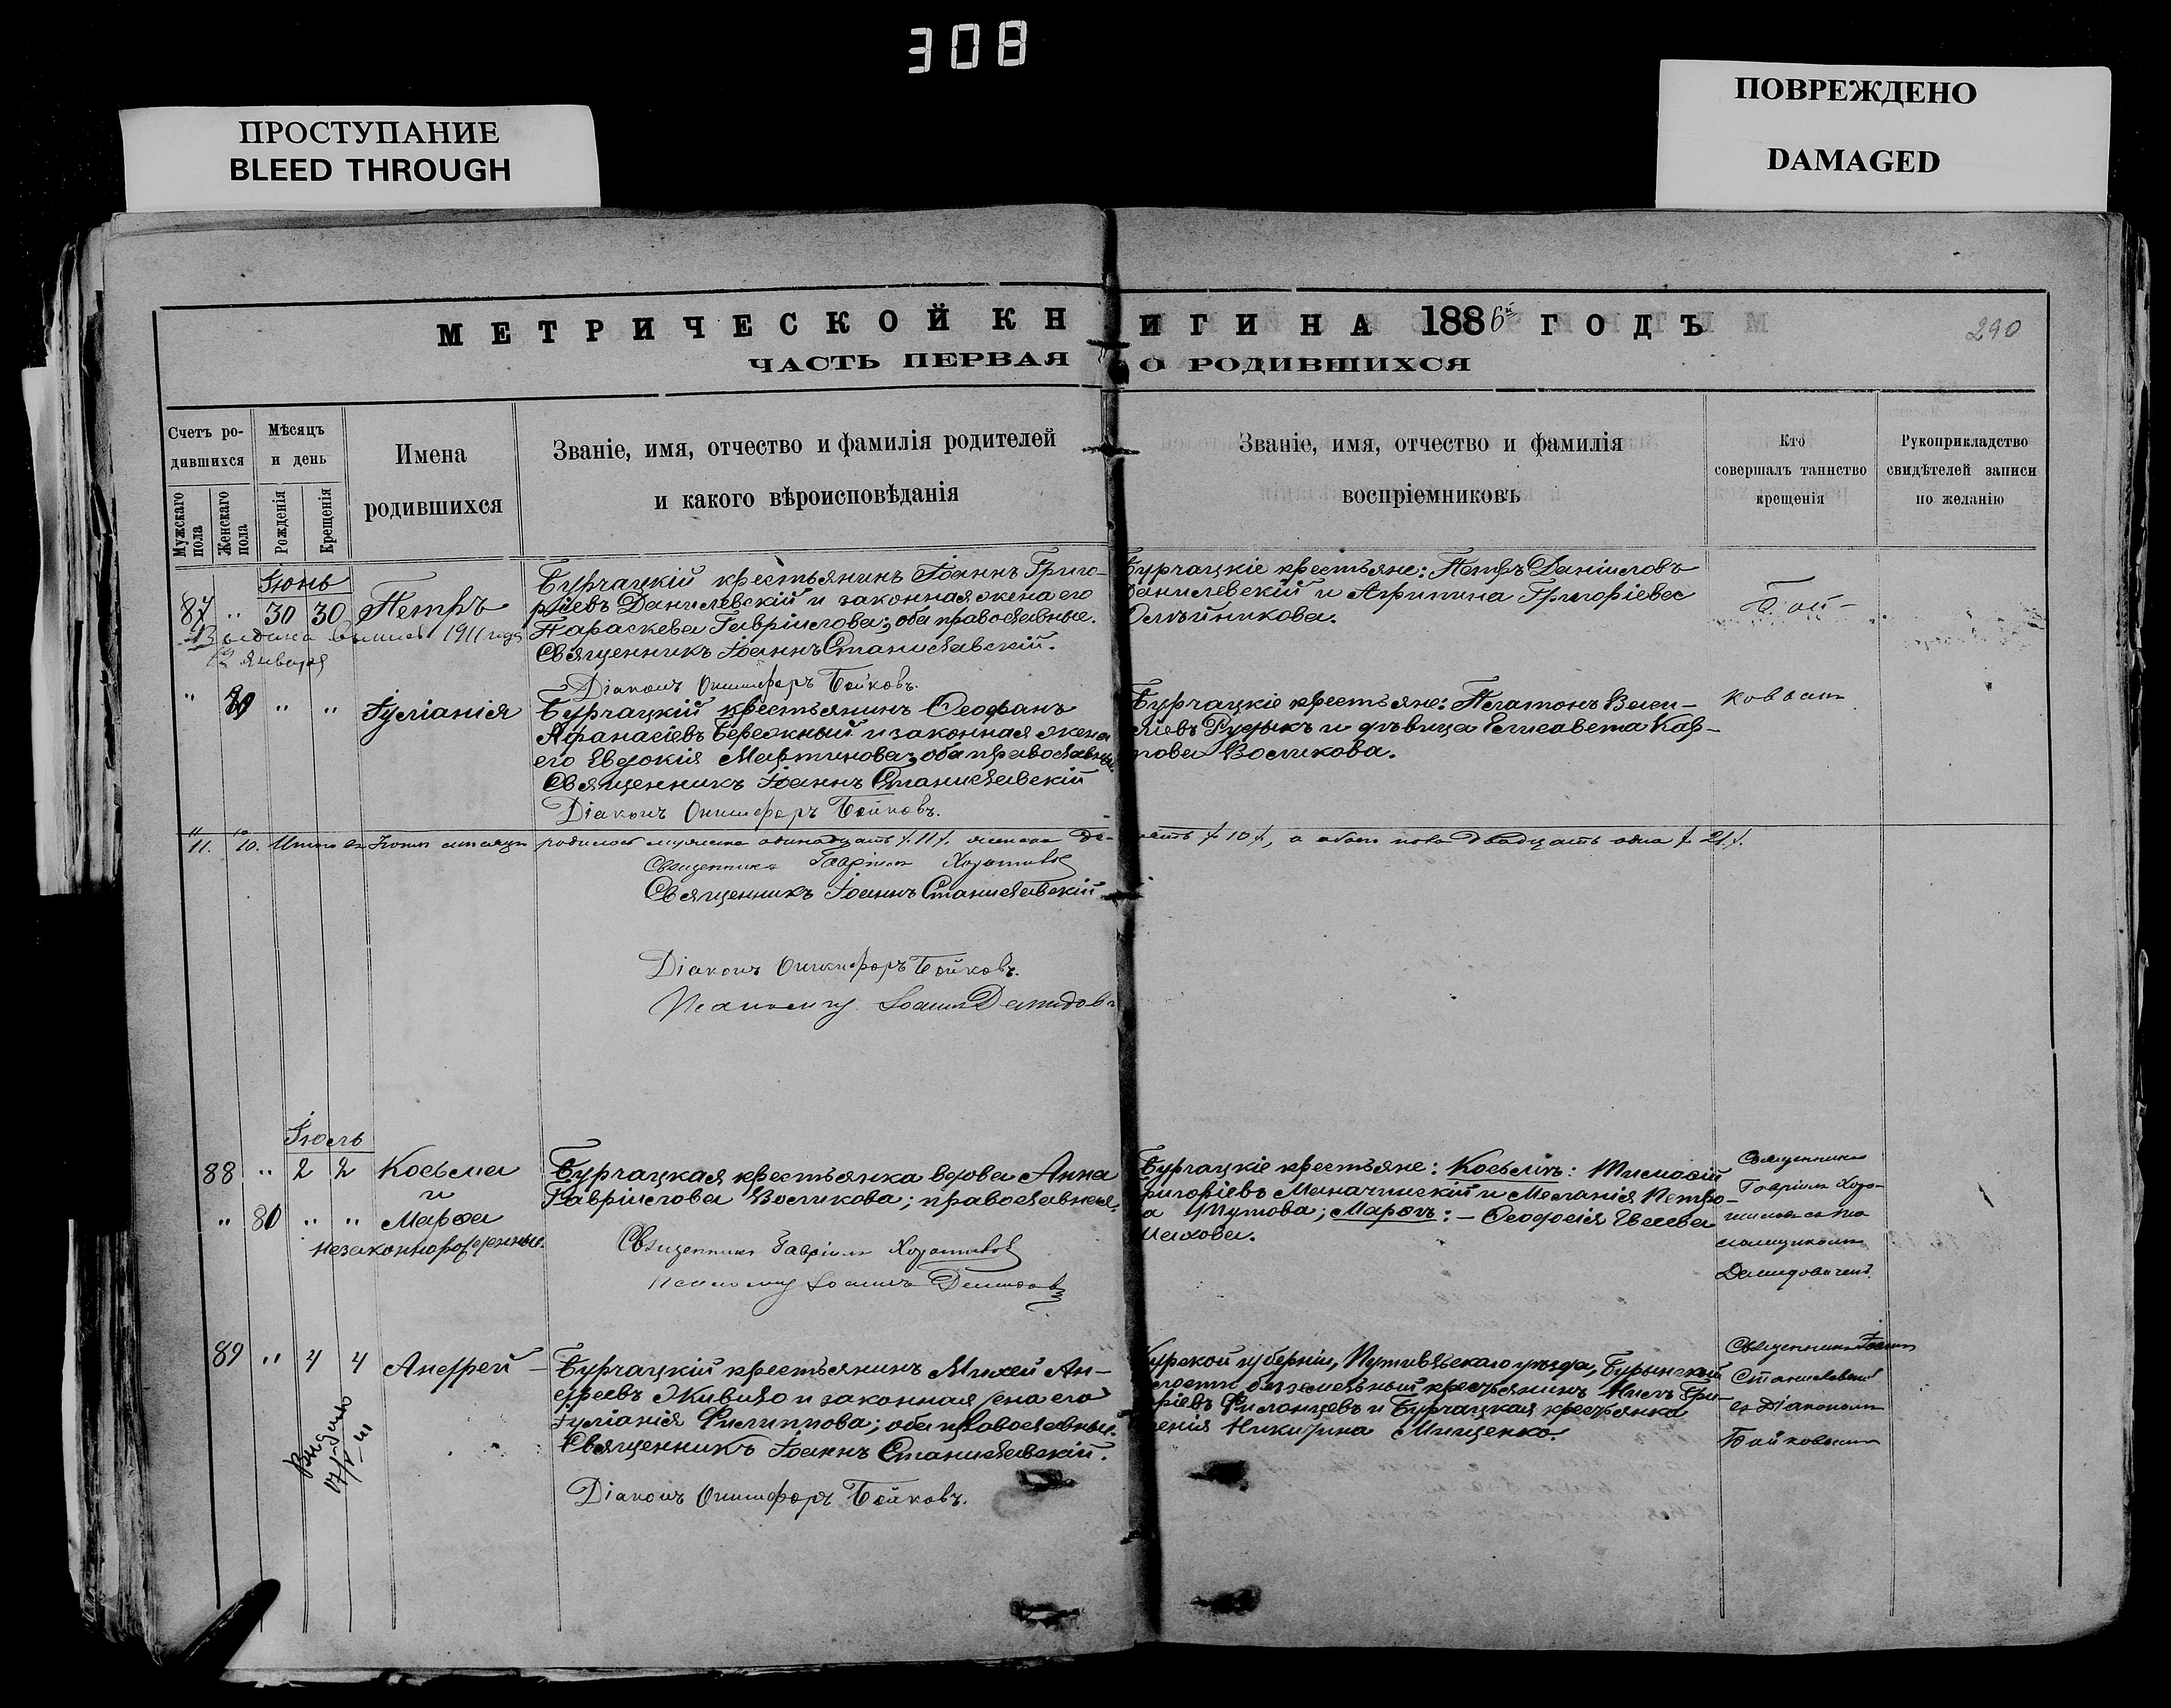 308
ПРОСТУПАНИЕ
BLEED THROUGH
ПОВРЕЖДЕНО
DAMAGED
МЕТРИЧЕСКОЙ КНИГИ НА 1886й ГОДЪ
290
ЧАСТЬ ПЕРВАЯ О РОДИВШИХСЯ
Счетъ ро-
дившихся
Мужскаго пола
Женскаго пола
Мѣсяцъ
и день
Рожденія
Крещенія
Имена
родившихся
Званіе, имя, отчество и фамилія родителей
и какого вѣроисповѣданія
Званіе, имя, отчество и фамилія
воспріемниковъ
Кто
совершалъ таинство
крещенія
Рукоприкладство
свидѣтелей записи
по желанію
Іюнь
87 " 30 30 Петръ
1911 года
12 января
Бурчацкій крестьянинъ Іоаннъ Григо-
ріевъ Данилевскій и законная жена его
Параскева Гавріилова; оба православные.
Священникъ Іоаннъ Станиславскій.
Діаконъ Онисифоръ Бойковъ.
Бурчацкіе крестьяне: Петръ Даніиловъ
Данилевскій и Агрипина Григоріева
Олѣйникова.
Бой-
" " " Іуліанія
Бурчацкій крестьянинъ Ѳеофанъ
Афанасіевъ Бережный и законная жена
его Евдокія Мартинова; оба православные.
Священникъ Іоаннъ Станиславскій
Діаконъ Онисифоръ Бойковъ.
Бурчацкіе крестьяне: Платонъ Васи-
ліевъ Рудыкъ и дѣвица Елисавета Кар-
пова Воликова.
ковымъ
11. 10. Итого въ Іюнѣ мѣсяцѣ родилось мужеска одинадцать /11/, женска де-сять /10/, а обоего пола двадцать одна /21/.
Священникъ Гавріилъ
Священникъ Іоаннъ Станиславскій
Діаконъ Онисифоръ Бойковъ.
Псаломщ. Іоаннъ Демидовъ
Іюль
88 " 2 2 Косьма
и
" 80 " " Марѳа
незаконнорожденные.
Бурчацкая крестьянка вдова Анна
Гавріилова Воликова; православная.
Священникъ Гавріилъ
Псаломщ Іоаннъ Демидовъ
Бурчацкіе крестьяне: Косьмѣ: Тимоѳій
Григоріевъ Маначинскій и Меланія Петро-
ва Шутова; Марѳѣ: – Ѳеодосія Евсева
Священникъ
Гавріилъ
псаломщикомъ
Демидовичемъ.
89 " 4 4 Андрей
Бурчацкій крестьянинъ Михей Ан-
дреевъ Живило и законная жена его
Іуліанія Филиппова; оба православные.
Священникъ Іоаннъ Станиславскій.
Діаконъ Онисифоръ Бойковъ.
Курской губерніи, Путивльскаго уѣзда, Бурынской
волости безземельный крестьянинъ Нилъ Гри-
горіевъ Филонцевъ и Бурчацкая крестьянка
Никитина Мищенко.
Священникъ Іоаннъ
Станиславскій
съ Діакономъ
Бойковымъ